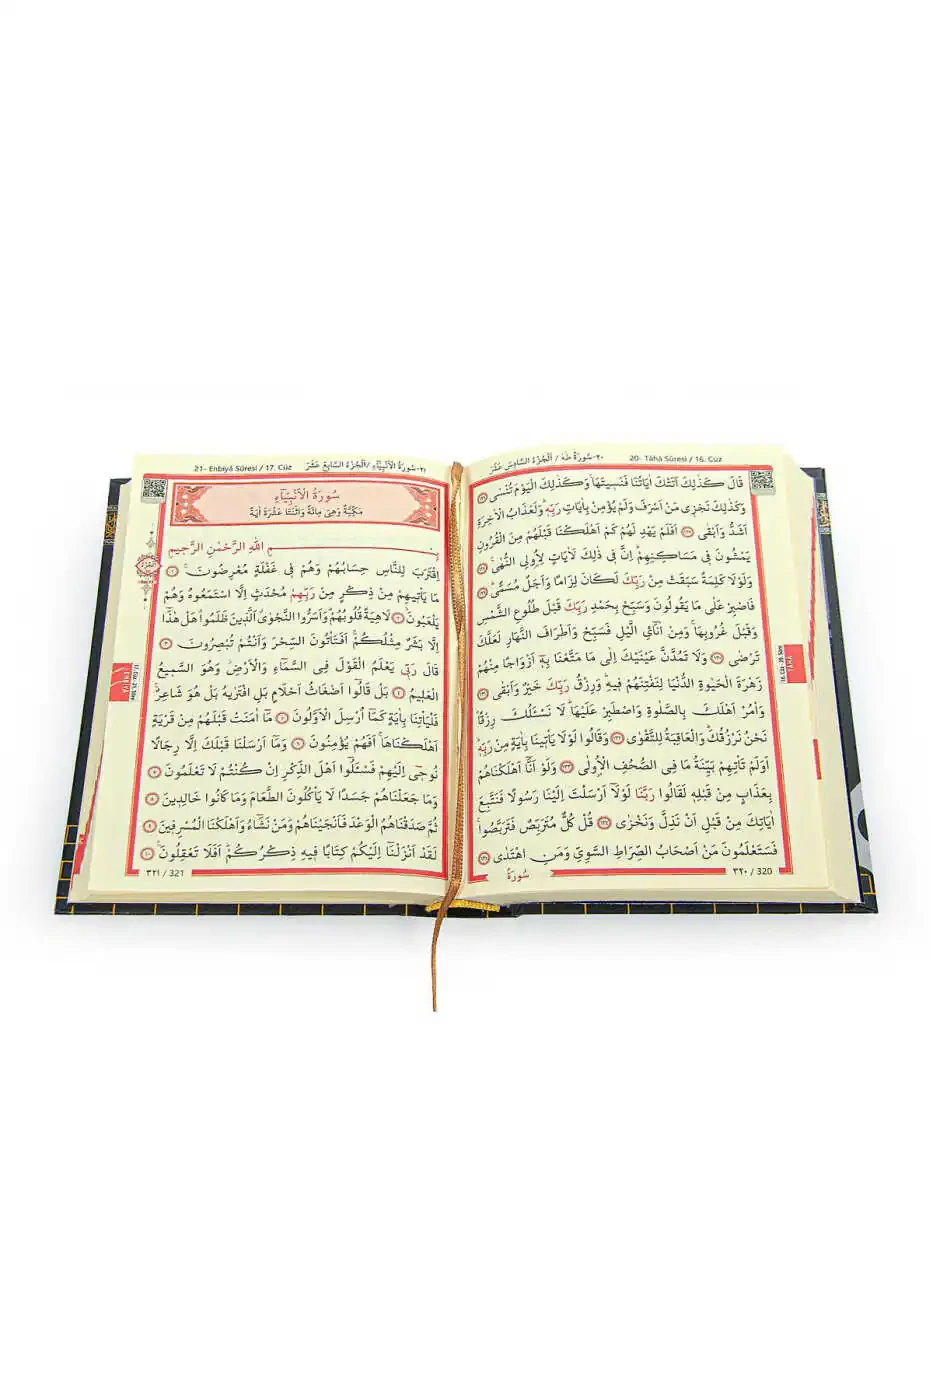 ٢٠-سُورَةُ طٰهٰ / اَلْجُزْءُ السَّادِسَ عَشَرَ 20- Tâhâ Sûresi / 16. Cüz
قَالَ كَذٰلِكَ اَتَتْكَ اٰيَاتُنَا فَنَسِيتَهَاۚ وَكَذٰلِكَ الْيَوْمَ تُنْسٰى ﴿١٢٦﴾
وَكَذٰلِكَ نَجْزِى مَنْ اَسْرَفَ وَلَمْ يُؤْمِنْ بِاٰيَاتِ رَبِّهِۜ وَلَعَذَابُ الْاٰخِرَةِ
اَشَدُّ وَاَبْقٰى ﴿١٢٧﴾ اَفَلَمْ يَهْدِ لَهُمْ كَمْ اَهْلَكْنَا قَبْلَهُمْ مِنَ الْقُرُونِ
يَمْشُونَ فِى مَسَاكِنِهِمْۜ اِنَّ فِى ذٰلِكَ لَاٰيَاتٍ لِاُو۬لِى النُّهٰى۟ ﴿١٢٨﴾
وَلَوْلَا كَلِمَةٌ سَبَقَتْ مِنْ رَبِّكَ لَكَانَ لِزَامًا وَاَجَلٌ مُسَمًّىۜ ﴿١٢٩﴾
فَاصْبِرْ عَلٰى مَا يَقُولُونَ وَسَبِّحْ بِحَمْدِ رَبِّكَ قَبْلَ طُلُوعِ الشَّمْسِ
وَقَبْلَ غُرُوبِهَاۚ وَمِنْ اٰنَآئِ الَّيْلِ فَسَبِّحْ وَاَطْرَافَ النَّهَارِ لَعَلَّكَ
تَرْضٰى ﴿١٣٠﴾ وَلَا تَمُدَّنَّ عَيْنَيْكَ اِلٰى مَا مَتَّعْنَا بِهٖٓ اَزْوَاجًا مِنْهُمْ
زَهْرَةَ الْحَيٰوةِ الدُّنْيَا لِنَفْتِنَهُمْ فِيهِۜ وَرِزْقُ رَبِّكَ خَيْرٌ وَاَبْقٰى ﴿١٣١﴾
وَأْمُرْ اَهْلَكَ بِالصَّلٰوةِ وَاصْطَبِرْ عَلَيْهَاۜ لَا نَسْـَٔلُكَ رِزْقًاۜ
نَحْنُ نَرْزُقُكَۜ وَالْعَاقِبَةُ لِلتَّقْوٰى ﴿١٣٢﴾ وَقَالُوا لَوْلَا يَأْتِينَا بِاٰيَةٍ مِنْ رَبِّهِۜ
اَوَلَمْ تَأْتِهِمْ بَيِّنَةُ مَا فِى الصُّحُفِ الْاُو۫لٰى ﴿١٣٣﴾ وَلَوْ اَنَّٓا اَهْلَكْنَاهُمْ
بِعَذَابٍ مِنْ قَبْلِهٖ لَقَالُوا رَبَّنَا لَوْلَٓا اَرْسَلْتَ اِلَيْنَا رَسُولًا فَنَتَّبِعَ
اٰيَاتِكَ مِنْ قَبْلِ اَنْ نَذِلَّ وَنَخْزٰى ﴿١٣٤﴾ قُلْ كُلٌّ مُتَرَبِّصٌ فَتَرَبَّصُواۚ
فَسَتَعْلَمُونَ مَنْ اَصْحَابُ الصِّرَاطِ السَّوِىِّ وَمَنِ اهْتَدٰى ﴿١٣٥﴾
سُورَةُ
٣٢٠ / 320
16. Cüz - 20. Sûre
TÂHÂ
٢١-سُورَةُ الْاَنْبِيَٓاءِ / اَلْجُزْءُ السَّابِعَ عَشَرَ 21- Enbiyâ Sûresi / 17. Cüz
سُورَةُ الْاَنْبِيَٓاءِ
مَكِّيَّةٌ وَهِىَ مِائَةٌ وَاثْنَتَا عَشْرَةَ اٰيَةً
بِسْمِ اللّٰهِ الرَّحْمٰنِ الرَّحِيمِ
اِقْتَرَبَ لِلنَّاسِ حِسَابُهُمْ وَهُمْ فِى غَفْلَةٍ مُعْرِضُونَۚ ﴿١﴾
مَا يَأْتِيهِمْ مِنْ ذِكْرٍ مِنْ رَبِّهِمْ مُحْدَثٍ اِلَّا اسْتَمَعُوهُ وَهُمْ
يَلْعَبُونَۙ ﴿٢﴾ لَاهِيَةً قُلُوبُهُمْۜ وَاَسَرُّوا النَّجْوَىۗ اَلَّذِينَ ظَلَمُواۗ هَلْ هٰذَٓا
اِلَّا بَشَرٌ مِثْلُكُمْۚ اَفَتَأْتُونَ السِّحْرَ وَاَنْتُمْ تُبْصِرُونَ ﴿٣﴾
قَالَ رَبِّى يَعْلَمُ الْقَوْلَ فِى السَّمَٓاءِ وَالْاَرْضِۘ وَهُوَ السَّمِيعُ
الْعَلِيمُ ﴿٤﴾ بَلْ قَالُٓوا اَضْغَاثُ اَحْلَامٍ بَلِ افْتَرٰيهُ بَلْ هُوَ شَاعِرٌۚ
فَلْيَأْتِنَا بِاٰيَةٍ كَمَٓا اُرْسِلَ الْاَوَّلُونَ ﴿٥﴾ مَٓا اٰمَنَتْ قَبْلَهُمْ مِنْ قَرْيَةٍ
اَهْلَكْنَاهَاۚ اَفَهُمْ يُؤْمِنُونَ ﴿٦﴾ وَمَٓا اَرْسَلْنَا قَبْلَكَ اِلَّا رِجَالًا
نُوحِٓى اِلَيْهِمْ فَسْـَٔلُٓوا اَهْلَ الذِّكْرِ اِنْ كُنْتُمْ لَا تَعْلَمُونَ ﴿٧﴾
وَمَا جَعَلْنَاهُمْ جَسَدًا لَا يَأْكُلُونَ الطَّعَامَ وَمَا كَانُوا خَالِدِينَ ﴿٨﴾
ثُمَّ صَدَقْنَاهُمُ الْوَعْدَ فَاَنْجَيْنَاهُمْ وَمَنْ نَشَٓاءُ وَاَهْلَكْنَا الْمُسْرِفِينَ ﴿٩﴾
لَقَدْ اَنْزَلْنَٓا اِلَيْكُمْ كِتَابًا فِيهِ ذِكْرُكُمْۜ اَفَلَا تَعْقِلُونَ۟ ﴿١٠﴾
٣٢١ / 321
17. Cüz - 21. Sûre
ENBİYÂ